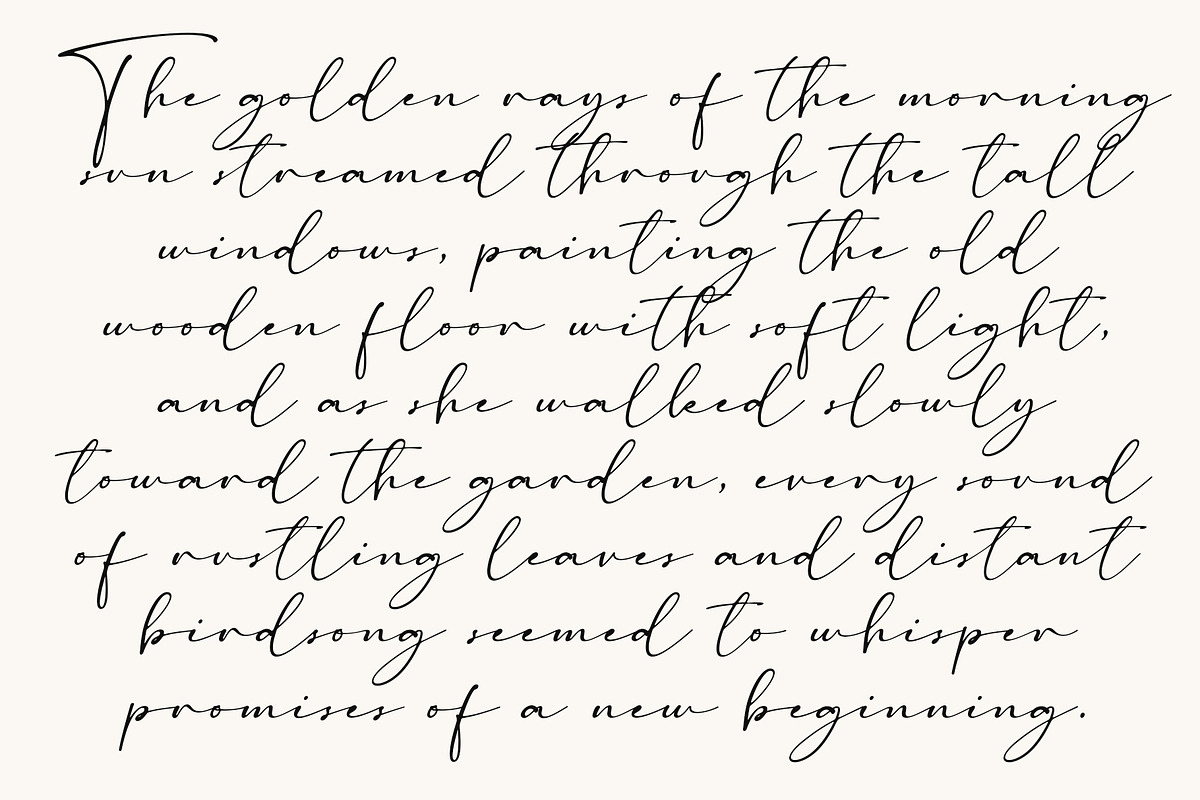 The golden rays of the morning
sun streamed through the tall
windows, painting the old
wooden floor with soft light,
and as she walked slowly
toward the garden, every sound
of rustling leaves and distant
birdsong seemed to whisper
promises of a new beginning.